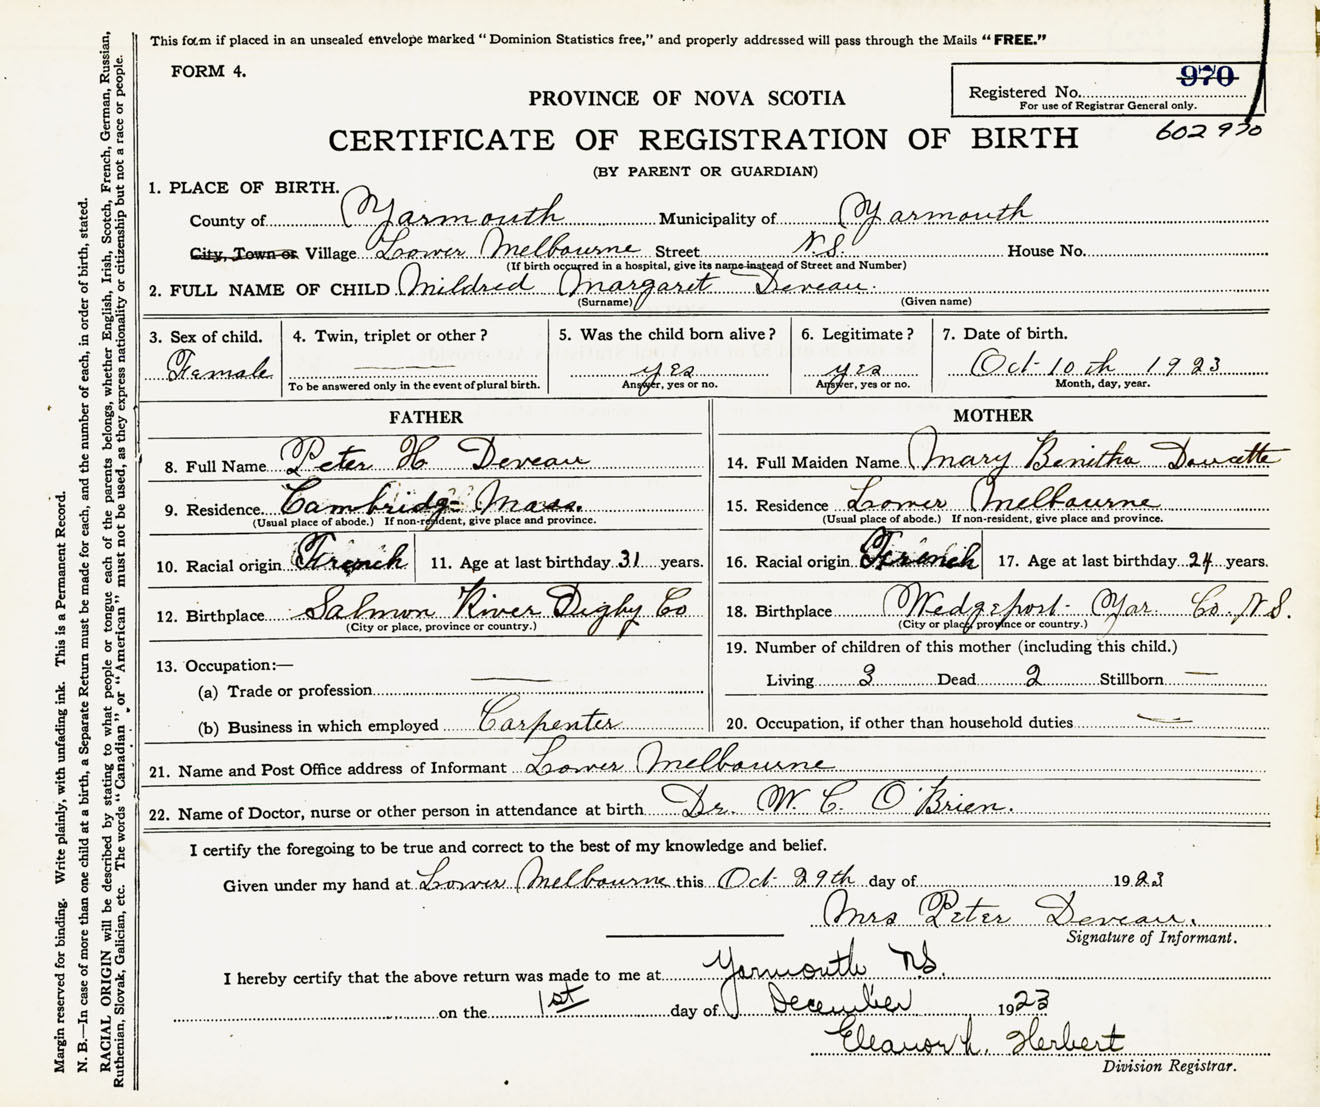 This form if placed in an unsealed envelope marked "Dominion Statistics free," and properly addressed will pass through the Mails "FREE."
FORM 4.
970
Registered No.
For use of Registrar General only.
PROVINCE OF NOVA SCOTIA
602 970
CERTIFICATE OF REGISTRATION OF BIRTH
(BY PARENT OR GUARDIAN)
1. PLACE OF BIRTH.
County of Yarmouth Municipality of Yarmouth
City, Town or Village Lower Melbourne Street N.S. House No.
(If birth occurred in a hospital, give its name instead of Street and Number)
2. FULL NAME OF CHILD Mildred Margaret Deveau.
(Surname) (Given name)
3. Sex of child. 4. Twin, triplet or other? 5. Was the child born alive? 6. Legitimate? 7. Date of birth.
Female — yes yes Oct 10th 1923
To be answered only in the event of plural birth. Answer, yes or no. Answer, yes or no. Month, day, year.
FATHER MOTHER
8. Full Name Peter H Deveau 14. Full Maiden Name Mary Benitha Doucette
9. Residence. Cambridg- Mass. 15. Residence Lower Melbourne
(Usual place of abode.) If non-resident, give place and province. (Usual place of abode.) If non-resident, give place and province.
10. Racial origin French 11. Age at last birthday 31 years. 16. Racial origin French 17. Age at last birthday 24 years.
12. Birthplace Salmon River Digby Co 18. Birthplace Wedgeport- Yar. Co. N.S.
(City or place, province or country.) (City or place, province or country.)
19. Number of children of this mother (including this child.)
13. Occupation:—
Living 3 Dead 2 Stillborn —
(a) Trade or profession —
(b) Business in which employed Carpenter 20. Occupation, if other than household duties —
21. Name and Post Office address of Informant Lower Melbourne
22. Name of Doctor, nurse or other person in attendance at birth Dr. W. C. O'Brien.
I certify the foregoing to be true and correct to the best of my knowledge and belief.
Given under my hand at Lower Melbourne this Oct 29th day of 1923
Mrs Peter Deveau.
Signature of Informant.
I hereby certify that the above return was made to me at Yarmouth N.S.
on the 1st day of December 1923
Eleanor L. Herbert
Division Registrar.
Margin reserved for binding. Write plainly, with unfading ink. This is a Permanent Record.
N. B.—In case of more than one child at a birth, a Separate Return must be made for each, and the number of each, in order of birth, stated.
RACIAL ORIGIN will be described by stating to what people or tongue each of the parents belongs, whether English, Irish, Scotch, French, German, Russian,
Ruthenian, Slovak, Galician, etc. The words "Canadian" or "American" must not be used, as they express nationality or citizenship but not a race or people.